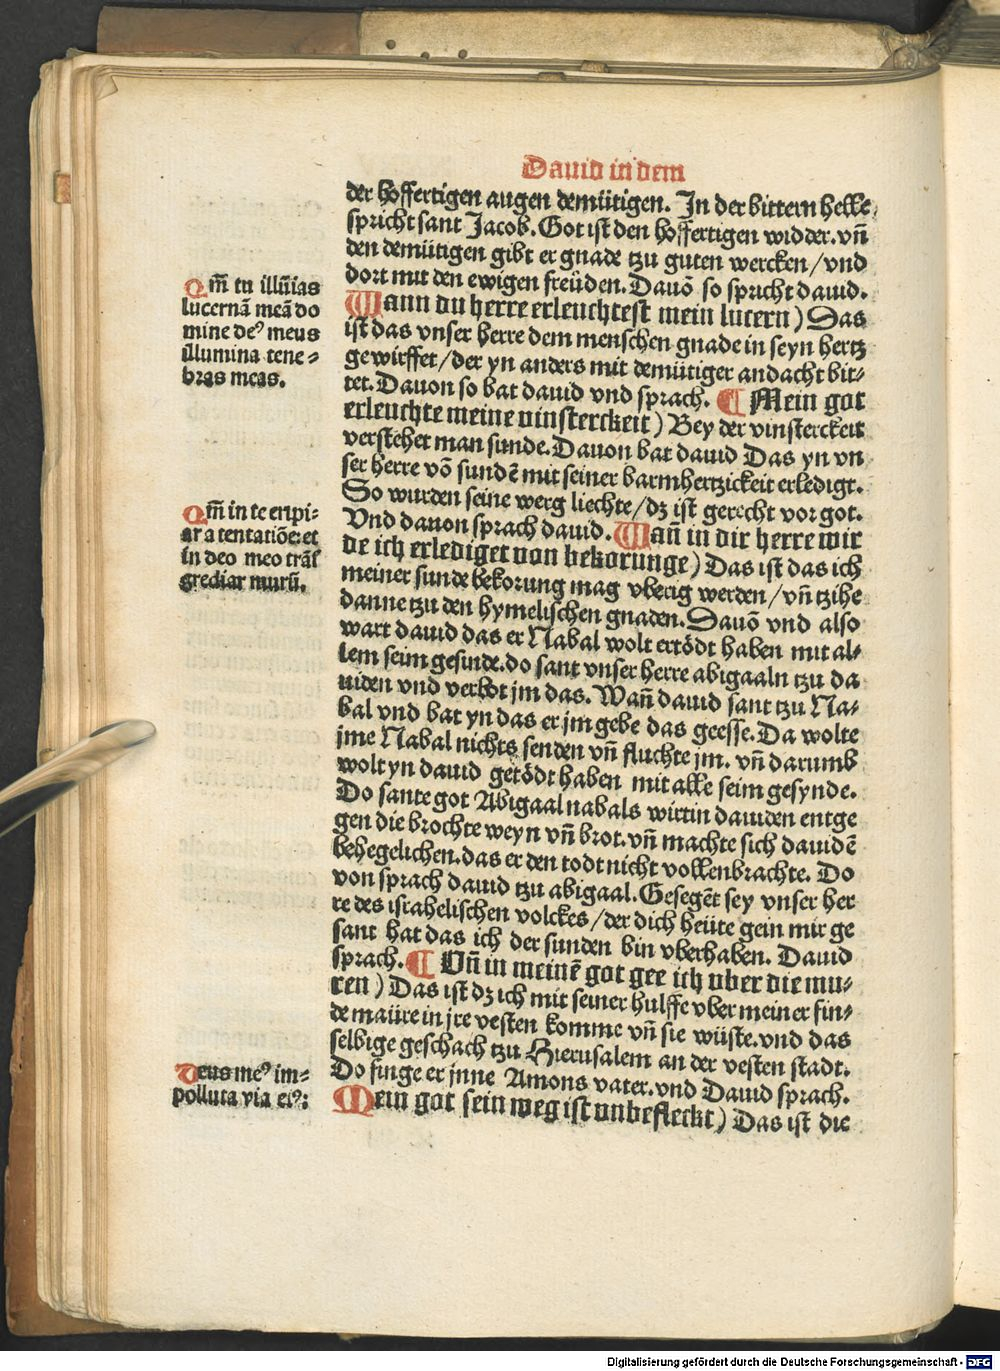 Dauid in dem
der hoffertigen augen demütigen. In der bittern helle
spricht sant Jacob. Got ist den hoffertigen widder. vñ
den demütigen gibt er gnade tzu guten wercken / vnd
dort mit den ewigen freüden. Dauō so spricht dauid.
Wann du herre erleuchtest mein lucern) Das
ist das vnser herre dem menschen gnade in seyn hertz
gewirffet / der yn anders mit demütiger andacht bit⸗
tet. Dauon so bat dauid vnd sprach. ¶ Mein got
erleuchte meine vinsterckeit) Bey der vinsterckeit
verstehet man sunde. Dauon bat dauid Das yn vn
ser herre vō sundē mit seiner barmhertzickeit erledigt.
So wurden seine werg liechte / dz ist gerecht vor got.
Vnd dauon sprach dauid. Wañ in dir herre wir
de ich erlediget von bekorunge) Das ist das ich
meiner sunde bekorung mag vberig werden / vñ tzihe
danne tzu den hymelischen gnaden. Dauō vnd also
wart dauid das er Nabal wolt ertödt haben mit al⸗
lem seim gesinde. do sant vnser herre abigaaln tzu da
uiden vnd verbot jm das. Wañ dauid sant tzu Na⸗
bal vnd bat yn das er jm gebe das geesse. Da wolte
jme Nabal nichts senden vñ fluchte jm. vñ darumb
wolt yn dauid getödt haben mit alle seim gesynde.
Do sante got Abigaal nabals wirtin dauiden entge
gen die brochte weyn vñ brot. vñ machte sich dauidē
behegelichen. das er den todt nicht vollenbrachte. Do
von sprach dauid tzu abigaal. Gesegēt sey vnser her
re des israhelischen volckes / der dich heüte gein mir ge
sant hat das ich der sunden bin vberhaben. Dauid
sprach. ¶ Vñ in meinē got gee ich vber die mu⸗
ren) Das ist dz ich mit seiner hulffe vber meiner fin⸗
de maüre in jre vesten komme vñ sie wüste. vnd das
selbige geschach tzu Hierusalem an der vesten stadt.
Do finge er jnne Amons vater. vnd Dauid sprach.
Mein got sein weg ist vnbefleckt) Das ist die
Qm̄ tu illūias
lucernā meā do
mine deꝰ meus
illumina tene⸗
bras meas.
Qm̄ in te eripi⸗
ar a tentatiōe: et
in deo meo trāſ
grediar murū.
Deus meꝰ im⸗
polluta via eiꝰ:
Digitalisierung gefördert durch die Deutsche Forschungsgemeinschaft - DFG